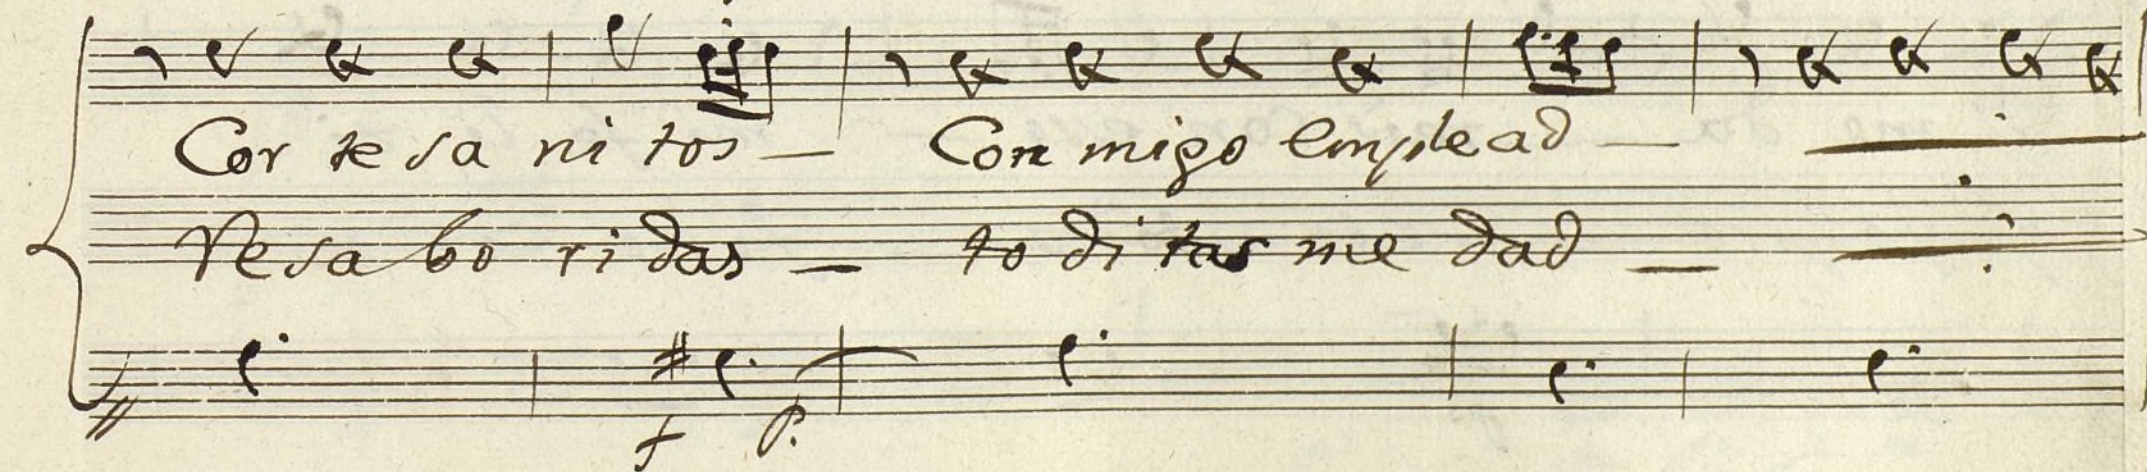 Cor te sa ni tos — Con migo emplead —
Desa bo ri das — to di tas me dad —
f p.